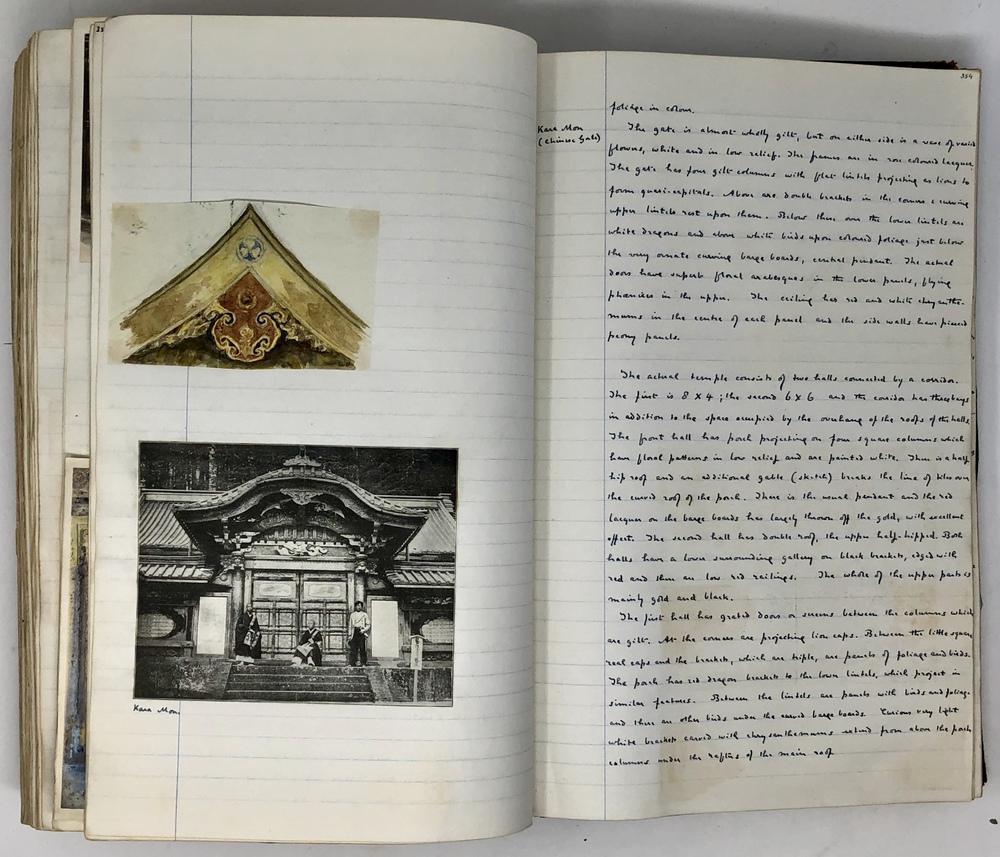 Kara Mon
354
Kara Mon
(Chinese Gate)
foliage in colour.
The gate is almost wholly gilt, but on either side is a vase of varied
flowers, white and in low relief. The frames are in rose coloured lacquer.
The gate has four gilt columns with flat lintels projecting as lions to
form quasi-capitals. Above are double brackets in the corners & curving
upper lintels rest upon them. Below these over the lower lintels are
white dragons and above white birds upon coloured foliage just below
the very ornate curving barge boards, central pendant. The actual
doors have superb floral arabesques in the lower panels, flying
phoenixes in the upper. The ceiling has red and white chrysanthe-
mums in the centre of each panel and the side walls have pierced
peony panels.
The actual temple consists of two halls connected by a corridor.
The first is 8 X 4; the second 6 X 6 and the corridor has three bays
in addition to the space occupied by the overhang of the roofs of the halls.
The front hall has porch projecting on four square columns which
have floral patterns in low relief and are painted white. There is a half
hip roof and an additional gable (sketch) breaks the line of tiles over
the curved roof of the porch. There is the usual pendant and the red
lacquer on the barge boards has largely thrown off the gold, with excellent
effect. The second hall has double roof, the upper half-hipped. Both
halls have a lower surrounding gallery on black brackets, edged with
red and then are low red railings. The whole of the upper parts is
mainly gold and black.
The first hall has grated doors or screens between the columns which
are gilt. At the corners are projecting lion caps. Between the little square
real caps and the brackets, which are triple, are panels of foliage and birds.
The porch has red dragon brackets to the lower lintels, which project in
similar features. Between the lintels are panels with birds and foliage
and there are other birds under the curved barge boards. Curious very light
white brackets carved with chrysanthemums extend from above the porch
columns under the rafters of the main roof